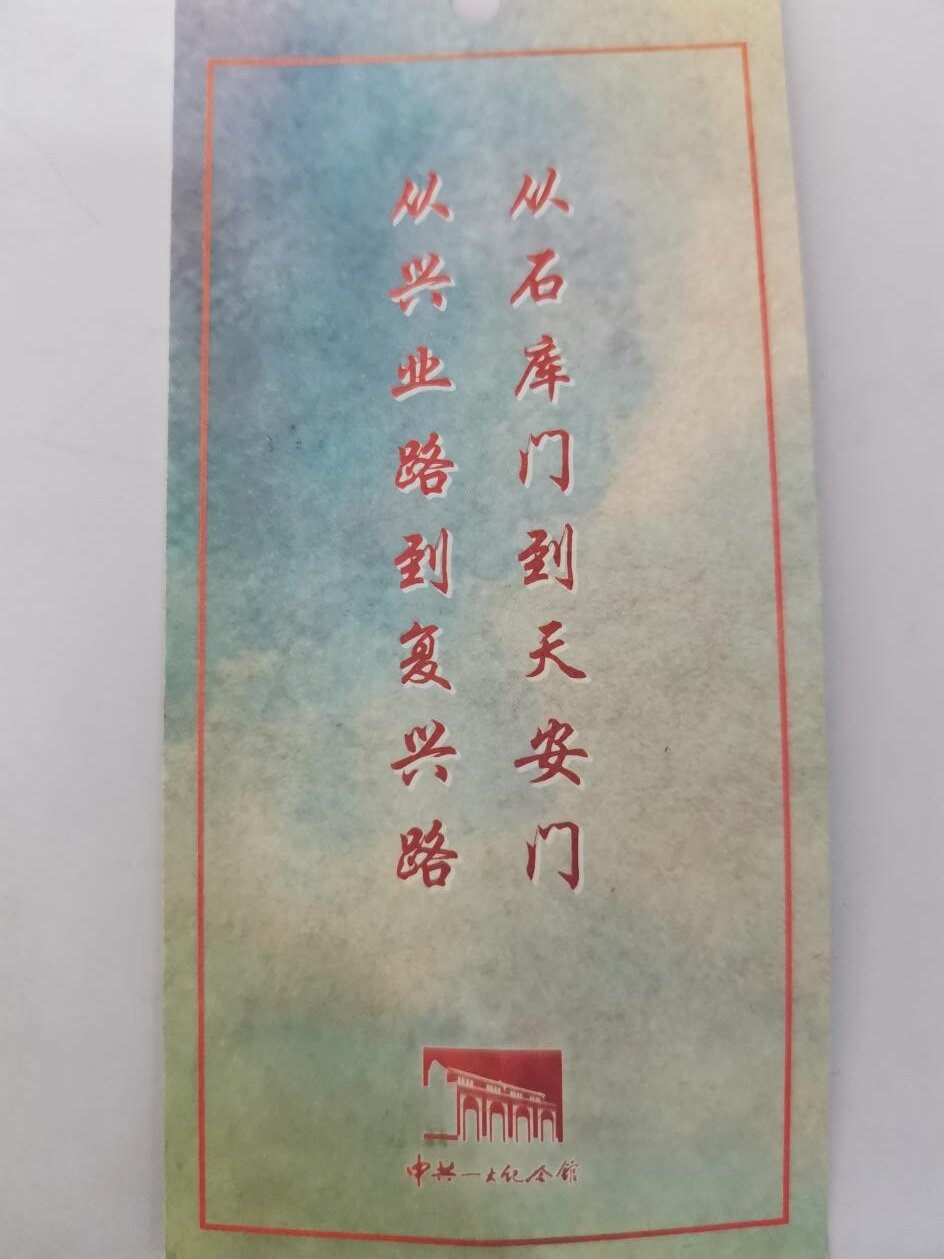 从石库门到天安门
从兴业路到复兴路
中共一大纪念馆